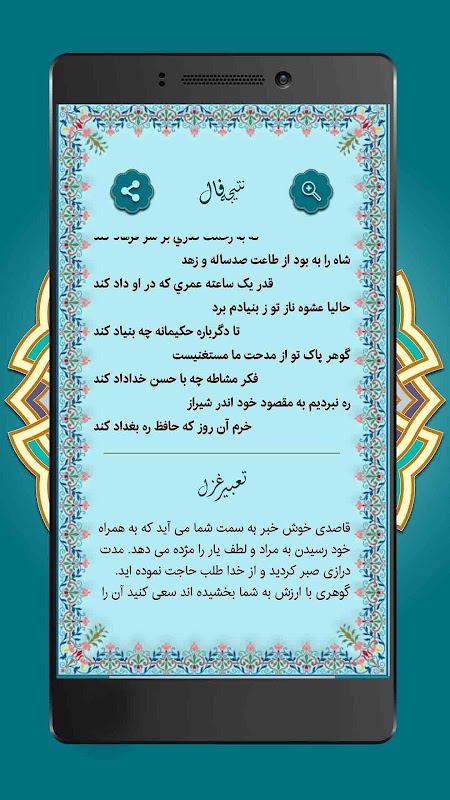 نتیجه فال
که به رحمت گذري بر سر فرهاد کند
شاه را به بود از طاعت صدساله و زهد
قدر یک ساعته عمري که در او داد کند
حالیا عشوه ناز تو ز بنیادم برد
تا دگرباره حکیمانه چه بنیاد کند
گوهر پاک تو از مدحت ما مستغنیست
فکر مشاطه چه با حسن خداداد کند
ره نبردیم به مقصود خود اندر شیراز
خرم آن روز که حافظ ره بغداد کند
تعبیر غزل
قاصدی خوش خبر به سمت شما می آید که به همراه
خود رسیدن به مراد و لطف یار را مژده می دهد. مدت
درازی صبر کردید و از خدا طلب حاجت نموده اید.
گوهری با ارزش به شما بخشیده اند سعی کنید آن را